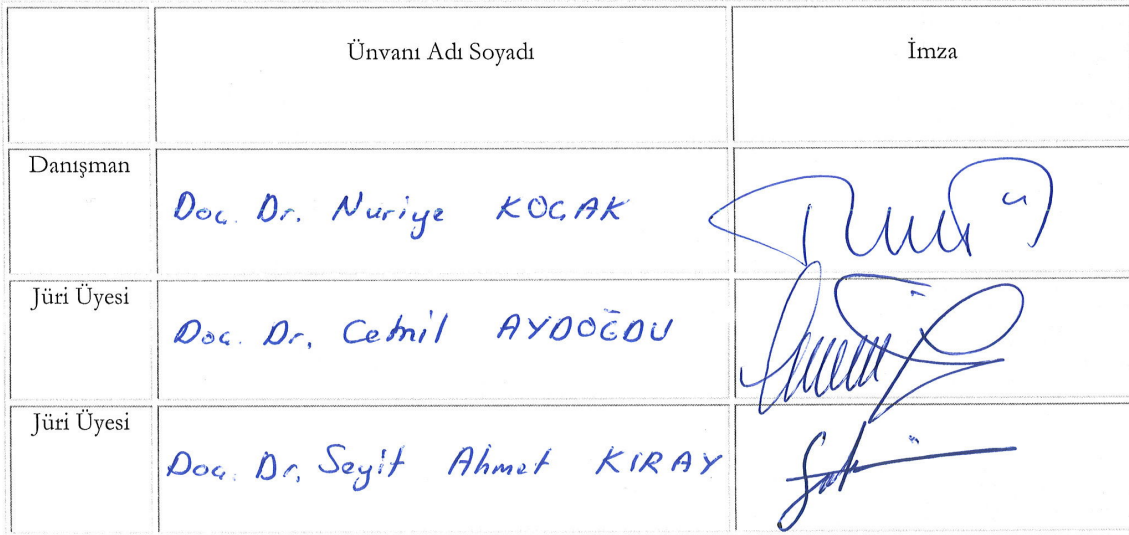 Ünvanı Adı Soyadı İmza
Danışman
Doç. Dr. Nuriye KOÇAK
Jüri Üyesi
Doç. Dr. Cemil AYDOĞDU
Jüri Üyesi
Doç. Dr. Seyit Ahmet KIRAY